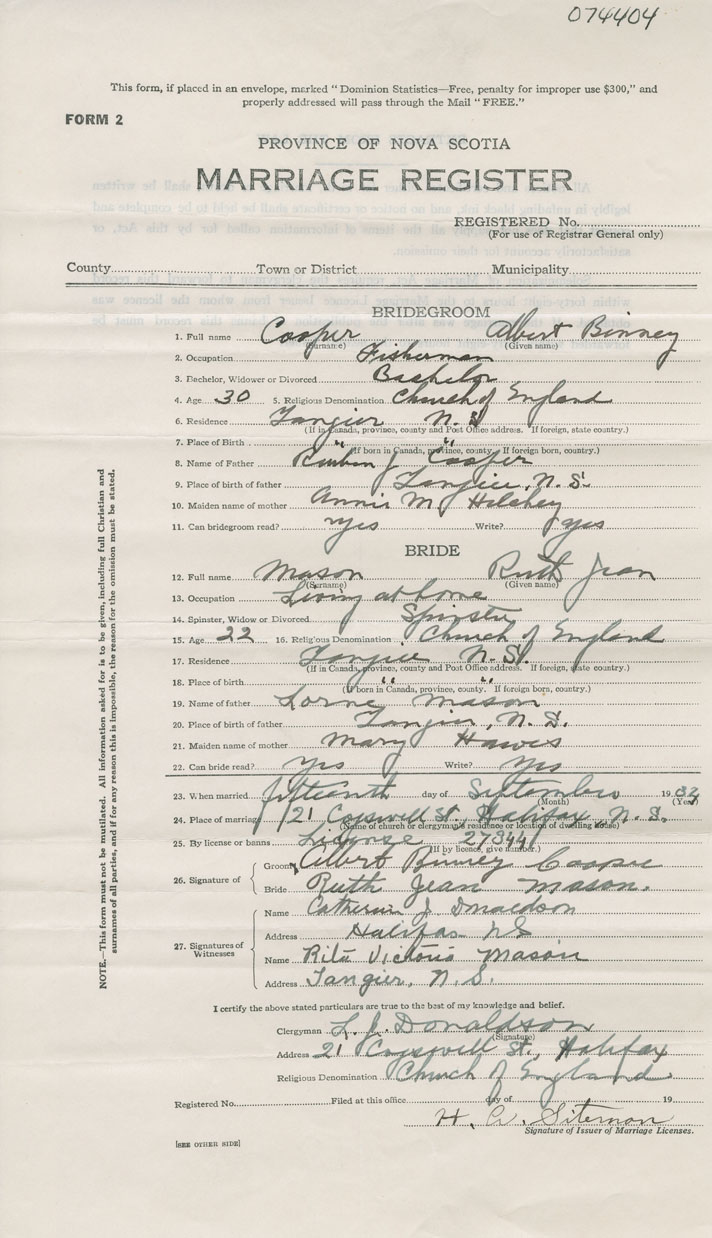 074404
This form, if placed in an envelope, marked "Dominion Statistics—Free, penalty for improper use $300," and
properly addressed will pass through the Mail "FREE."
FORM 2
PROVINCE OF NOVA SCOTIA
MARRIAGE REGISTER
REGISTERED No.
(For use of Registrar General only)
County Town or District Municipality
BRIDEGROOM
1. Full name Cooper Albert Binney
(Surname) (Given name)
2. Occupation Fisherman
3. Bachelor, Widower or Divorced Bachelor
4. Age 30 5. Religious Denomination Church of England
6. Residence Tangier N. S.
(If in Canada, province, county and Post Office address. If foreign, state country.)
7. Place of Birth " "
(If born in Canada, province, county. If foreign born, country.)
8. Name of Father Reuben J. Cooper
9. Place of birth of father Tangier, N. S.
10. Maiden name of mother Annie M Hilchey
11. Can bridegroom read? Yes Write? Yes
BRIDE
12. Full name Mason Ruth Jean
(Surname) (Given name)
13. Occupation Living at home
14. Spinster, Widow or Divorced Spinster
15. Age 22 16. Religious Denomination Church of England
17. Residence Tangier N. S.
(If in Canada, province, county and Post Office address. If foreign, state country.)
18. Place of birth " "
(If born in Canada, province, county. If foreign born, country.)
19. Name of father Lorne Mason
20. Place of birth of father Tangier, N. S.
21. Maiden name of mother Mary Hawes
22. Can bride read? Yes Write? Yes
23. When married fifteenth day of September 1932
(Month) (Year)
24. Place of marriage 21 Cogswell St., Halifax N. S.
(Name of church or clergyman's residence or location of dwelling house)
25. By license or banns License 27844
(If by licence, give number.)
26. Signature of
Groom Albert Binney Cooper
Bride Ruth Jean Mason.
27. Signatures of Witnesses
Name Catherine J. Donaldson
Address Halifax NS
Name Rita Victoria Mason
Address Tangier, N. S.
I certify the above stated particulars are true to the best of my knowledge and belief.
Clergyman L. J. Donaldson
(Signature)
Address 21 Cogswell St., Halifax
Religious Denomination Church of England
Registered No. Filed at this office day of 19
H. A. Siteman
Signature of Issuer of Marriage Licenses.
[SEE OTHER SIDE]
NOTE.—This form must not be mutilated. All information asked for is to be given, including full Christian and
surnames of all parties, and if for any reason this is impossible, the reason for the omission must be stated.